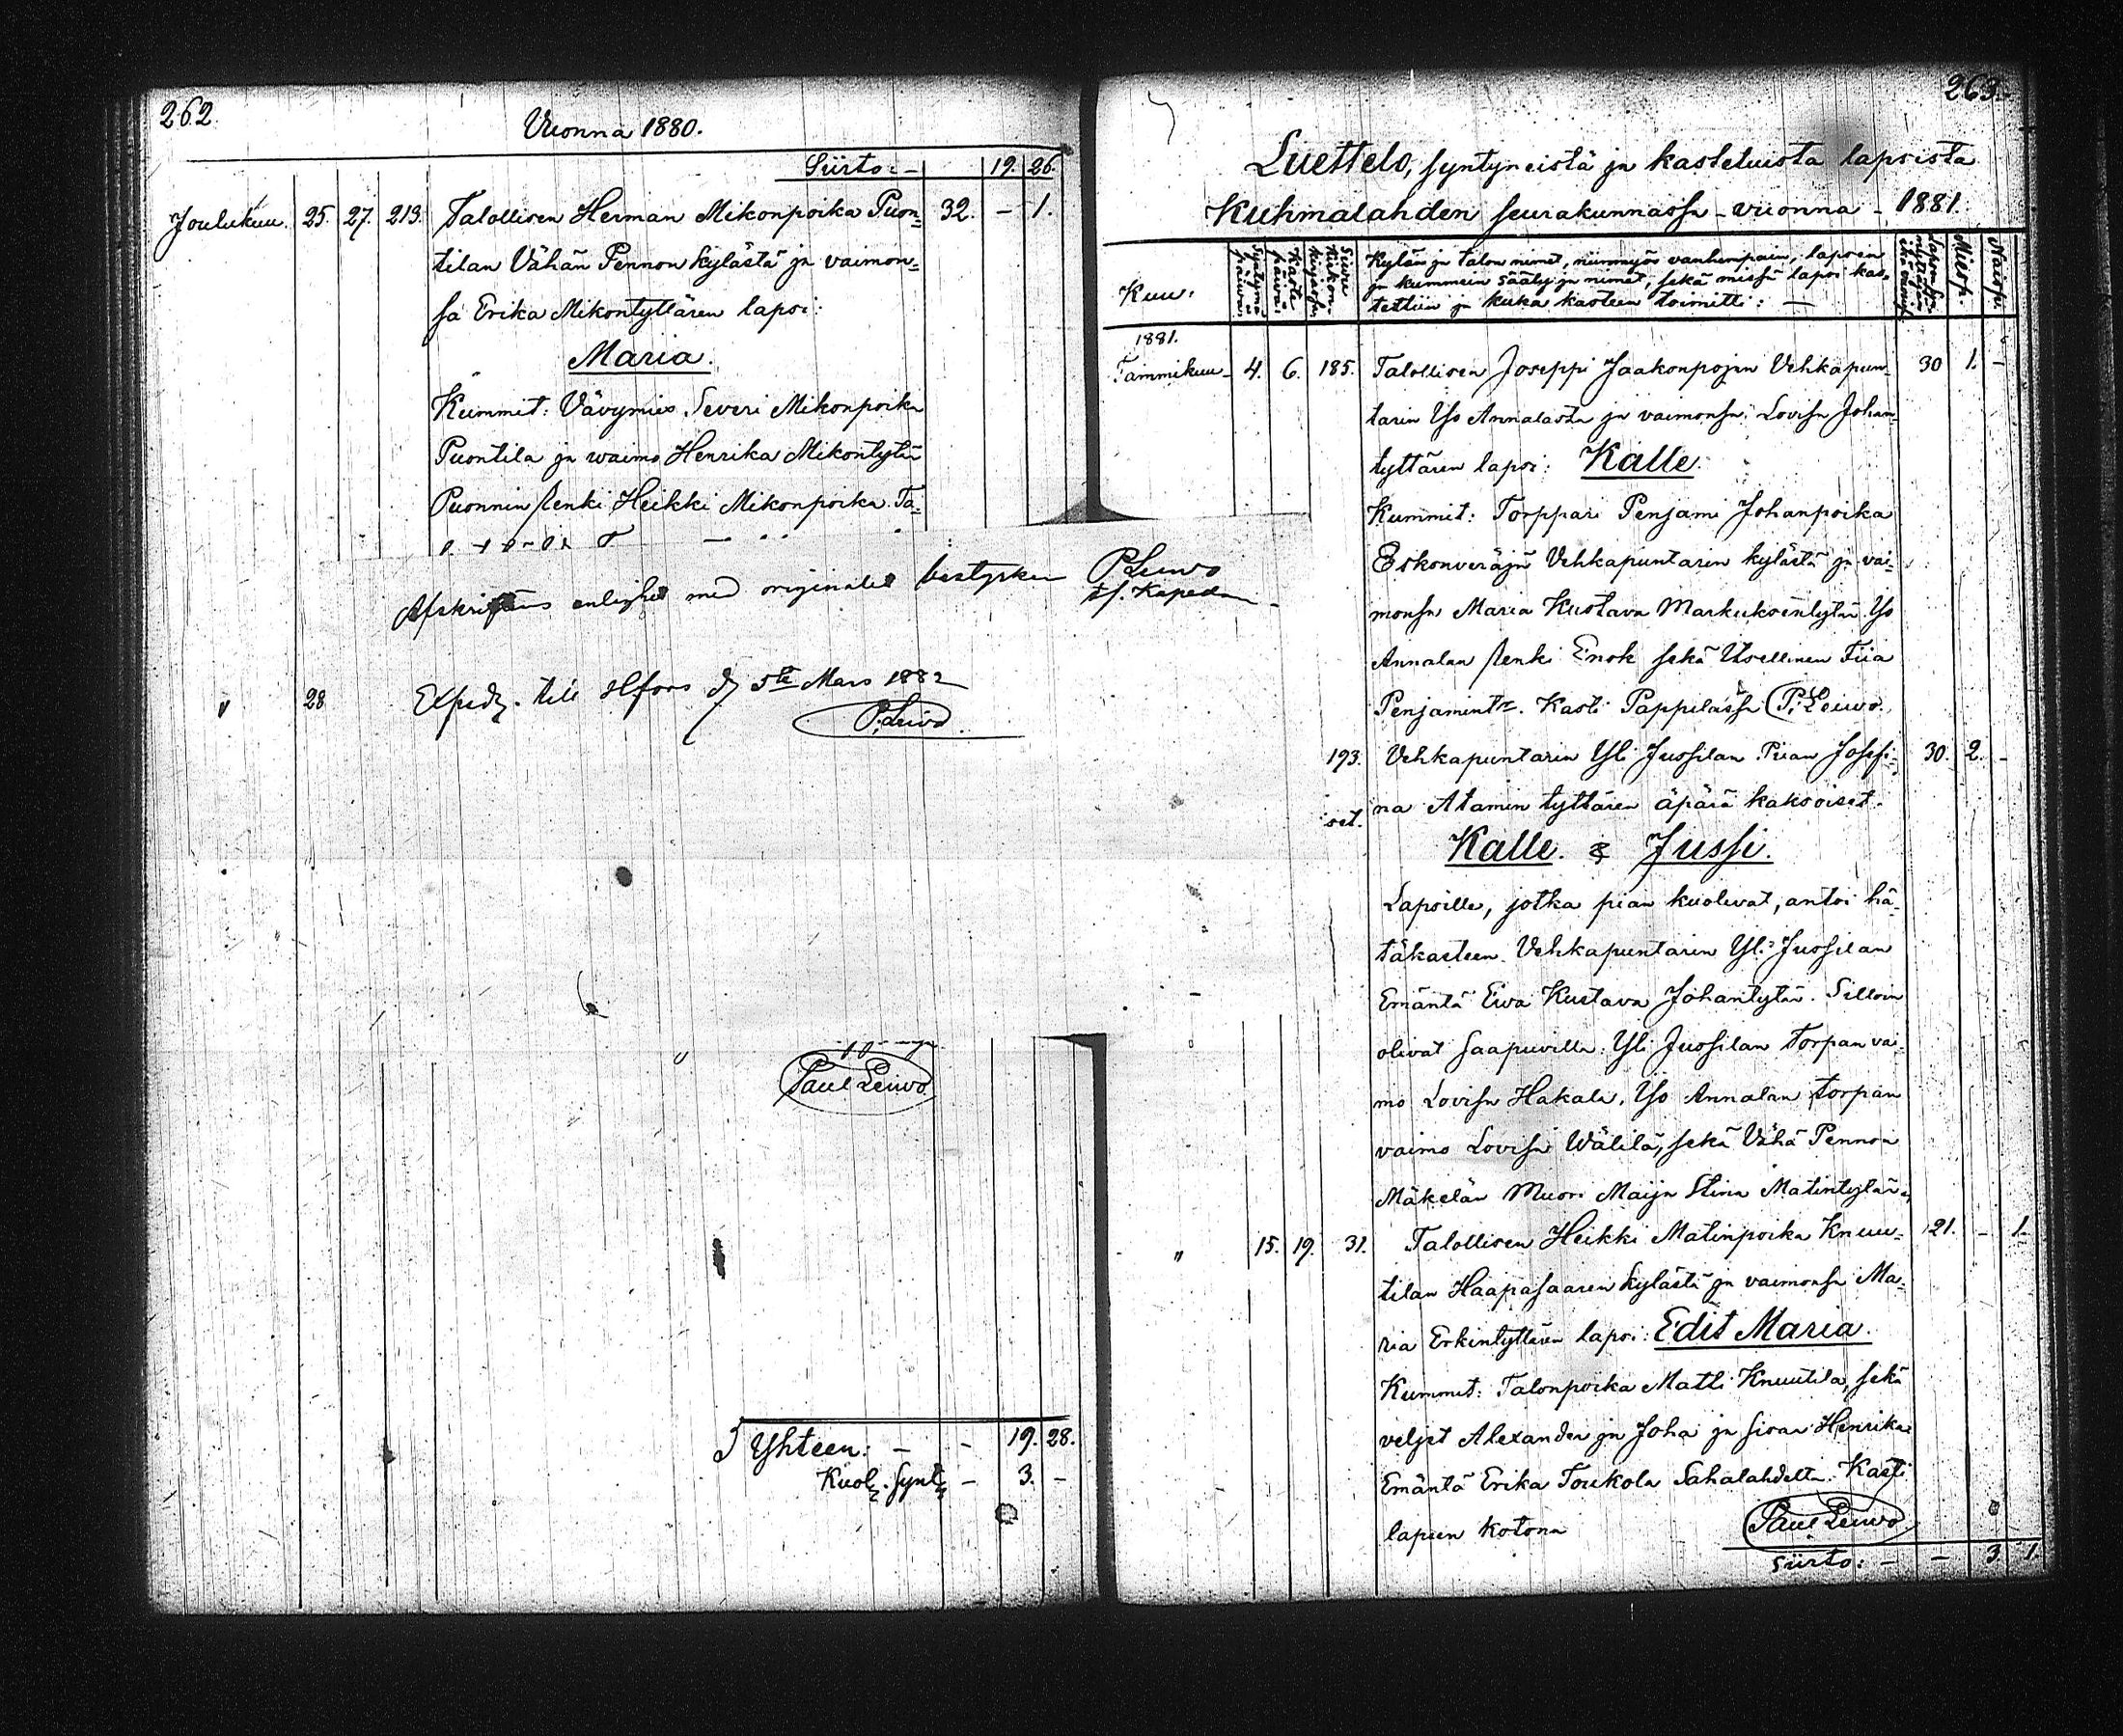 262.
Vuonna 1880.
Siirto: – 19. 26.
Joulukuu. 25. 27. 213. Talollisen Herman Mikonpoika Puon- 32. – 1.
tilan Vähän Pennon kylästä ja vaimon-
sa Erika Mikontyttären lapsi:
Maria.
Kummit: Vävymies Severi Mikonpoika
Puontila ja waimo Henrika Mikontytär
Puonnin Renki Heikki Mikonpoika Ta-
Afskriftens enlighet med originalet bestyrker P. Leivo
tf. Kapellan
28 Exped. till Hfors d 5te Mars 1882
P. Leivo.
Paul Leivo.
Yhteen: – – 19. 28.
Kuol. synt. – 3. –
263.
Luettelo, syntyneistä ja kastetuista lapsista
Kuhmalahden seurakunnassa – vuonna – 1881.
Kuu.
Syntymä päivä.
Kaste päivä.
Sivu Kirkon kirjassa.
Kylän ja talon nimet, niinmyös vanhempain, lapsen
ja kummein sääty ja nimet, sekä missä lapsi kas-
tettiin ja kuka kasteen toimitti: –
Miesp.
Naisp.
1881.
Tammikuu – 4. 6. 185. Talollisen Joseppi Jaakonpojan Vehkapun- 30 1. –
tarin Iso Annalasta ja vaimonsa Lovisa Johan-
tyttären lapsi: Kalle.
Kummit: Torppari Penjami Johanpoika
Eskonveräjä Vehkapuntarin kylästä ja vai-
monsa Maria Kustava Markuksentytär Iso
Annalan Renki Enok sekä Itsellinen Fiia
Penjamintr. Kasti Pappilassa P. Leivo.
193. Vehkapuntarin Yli Jussilan Piian Josefi- 30. 2. –
na Atamin tyttären äpärä kaksoiset.
Kalle. & Jussi.
Lapsille, jotka pian kuolivat, antoi hä-
täkasteen Vehkapuntarin Yli Jussilan
Emäntä Eiva Kustava Johantytär. Silloin
olivat saapuvilla: Yli Jussilan Torpan vai-
mo Lovisa Hakala, Iso Annalan torpan
vaimo Lovisa Wälilä, sekä Vähä Pennon
Mäkelän Muori Maija Stina Matintytär.
" 15. 19. 31. Talollisen Heikki Matinpoika Knuu- 21. – 1.
tilan Haapasaaren kylästä ja vaimonsa Ma-
ria Erkintyttären lapsi: Edit Maria.
Kummit: Talonpoika Matti Knuutila, sekä
veljet Alexander ja Joha ja sisar Henrika
Emäntä Erika Toukola Sahalahdelta. Kasti
lapsen kotona Paul Leivo.
Siirto: – – 3. 1.